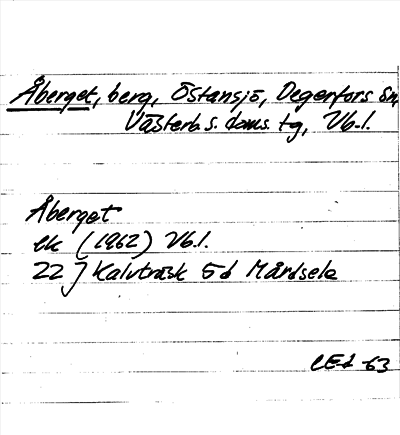 Åberget, berg, Östansjö, Degerfors sn,
Västerb. s. doms. tg, Vb. l.
Åberget
ek (1962) Vb. l.
22 J Kalvträsk 5d Mårdsele
CEd -63